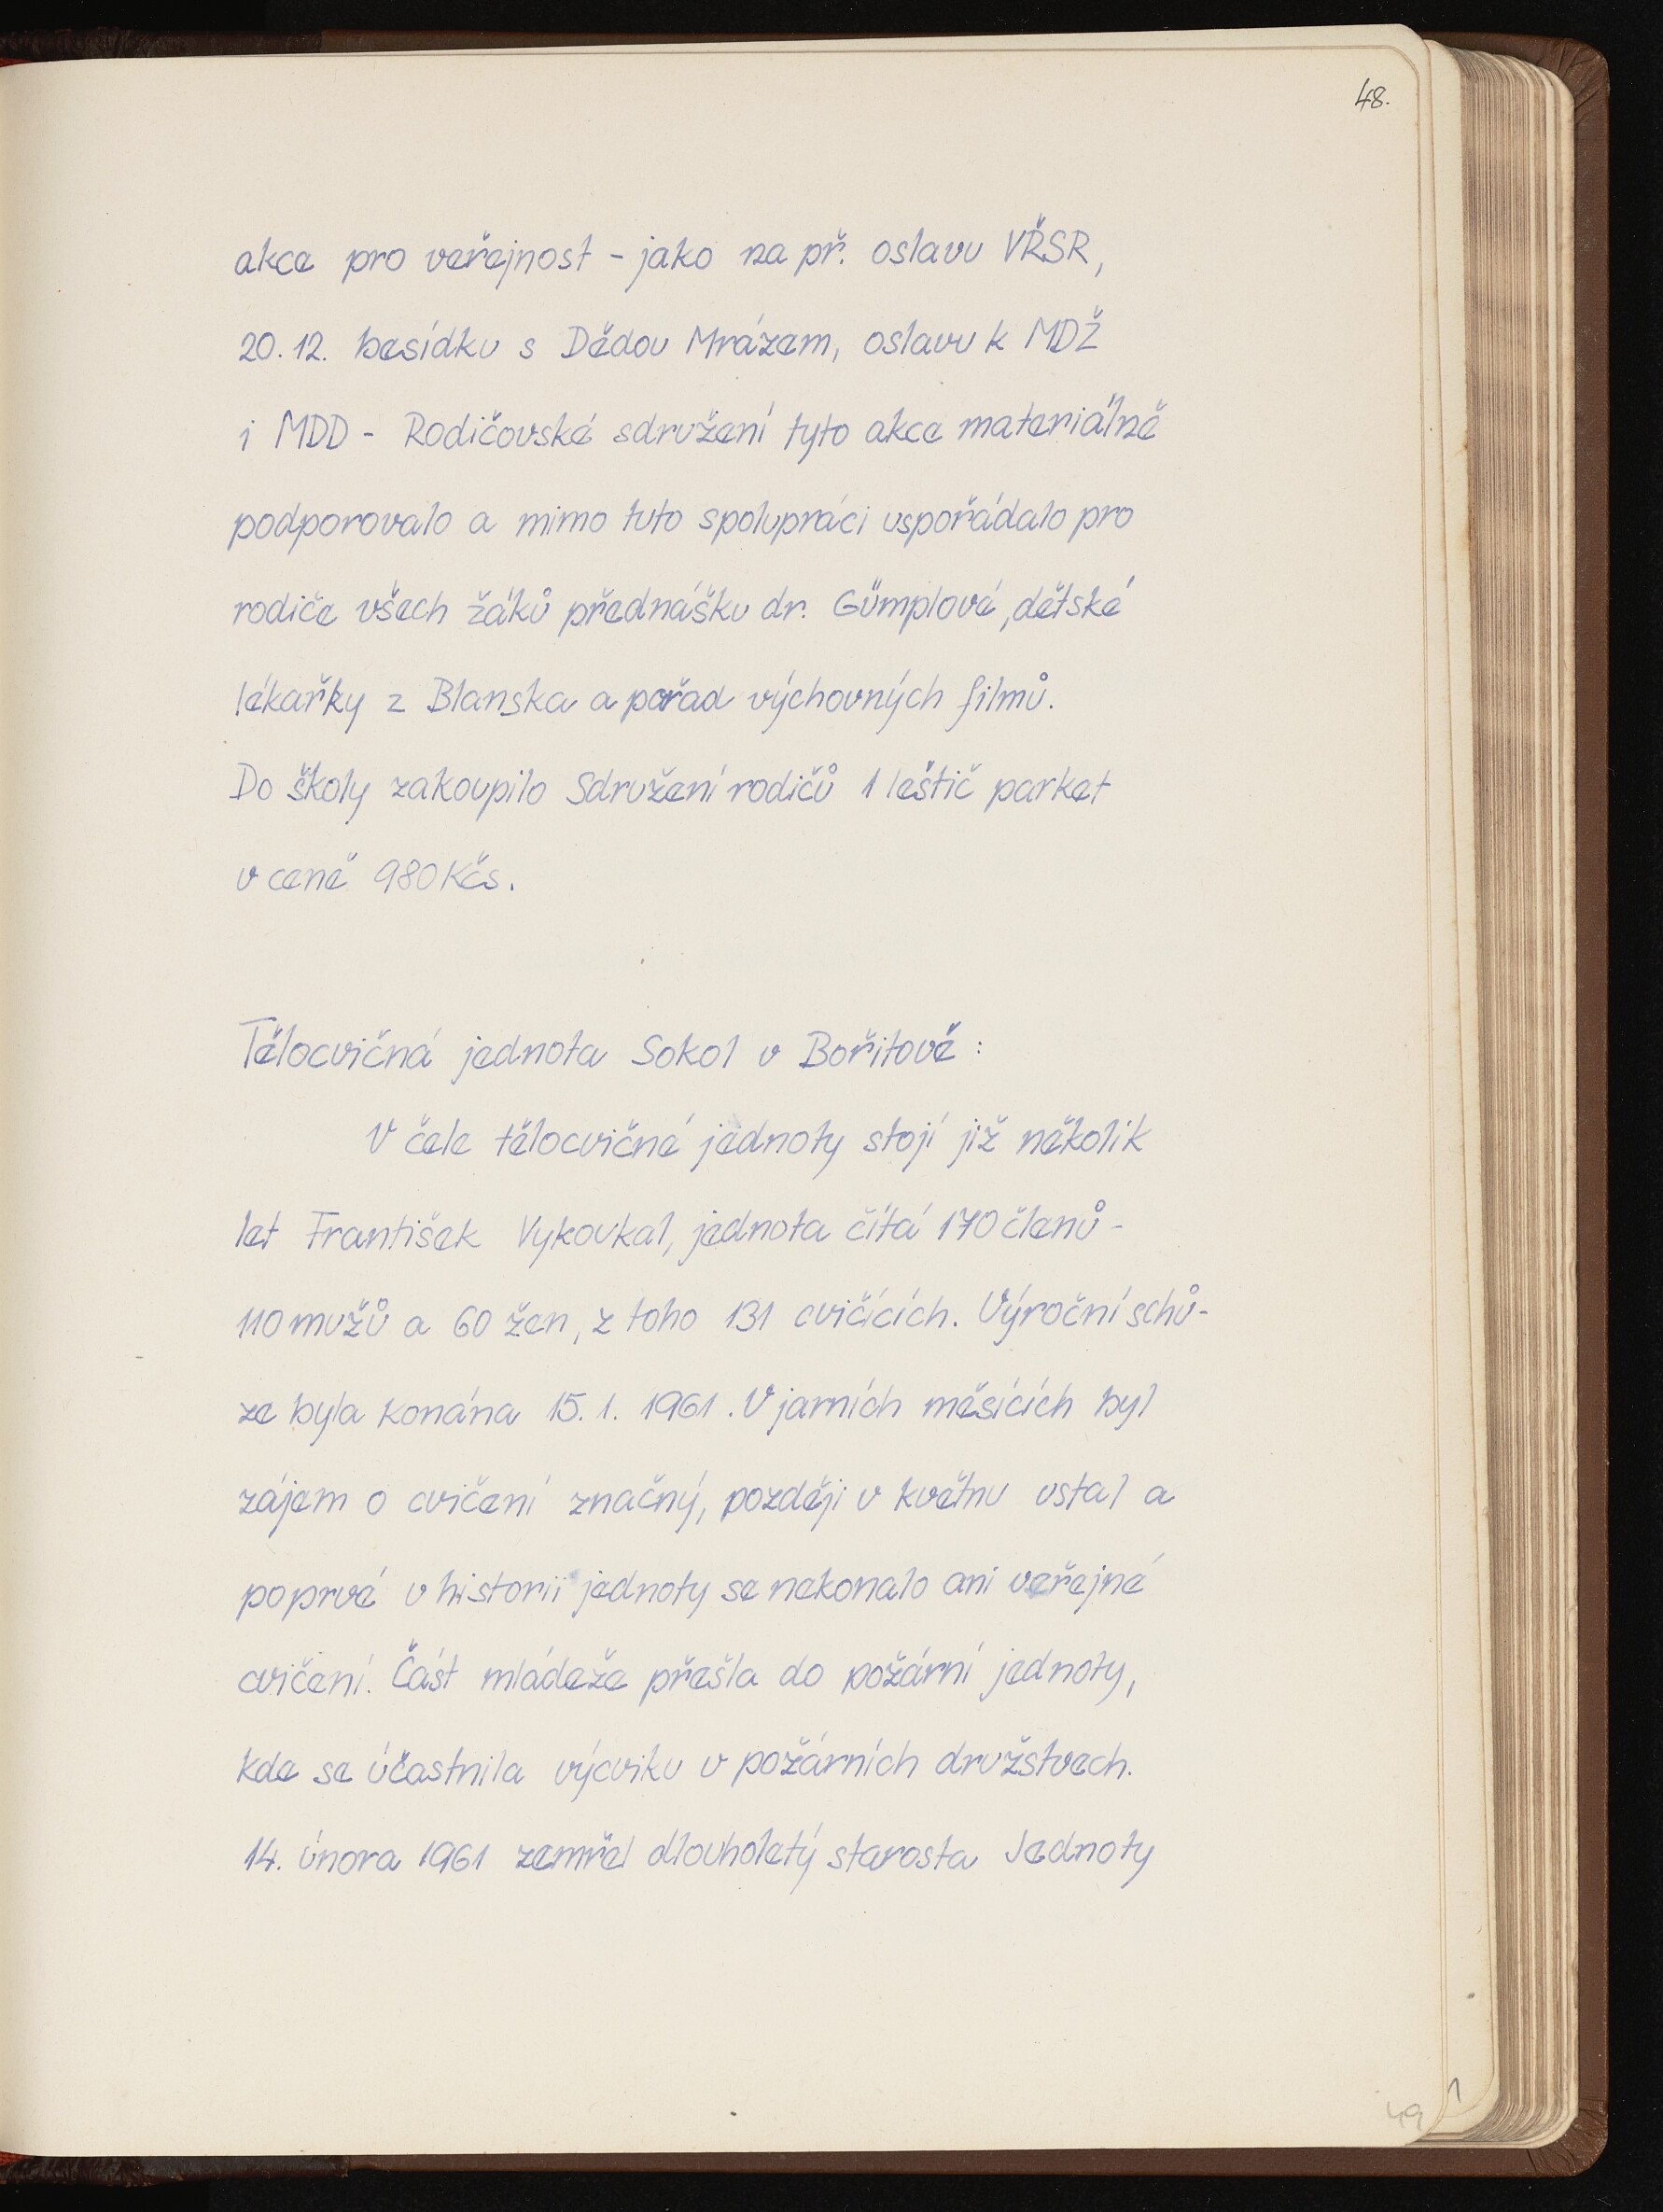 48.
akce pro veřejnost - jako na př. oslavu VŘSR,
20.12. besídku s Dědou Mrázem, oslavu k MDŽ
i MDD - Rodičovské sdružení tyto akce materiálně
podporovalo a mimo tuto spolupráci uspořádalo pro
rodiče všech žáků přednášku dr. Gümplové, dětské
lékařky z Blanska a pořad výchovných filmů.
Do školy zakoupilo Sdružení rodičů 1 leštič parket
v ceně 980 Kčs.
Tělocvičná jednota Sokol v Bořitově:
V čele tělocvičné jednoty stojí již několik
let František Vykoukal, jednota čítá 170 členů -
110 mužů a 60 žen, z toho 131 cvičících. Výroční schů-
ze byla konána 15. 1. 1961. V jarních měsících byl
zájem o cvičení značný, později v květnu ustal a
poprvé v historii jednoty se nekonalo ani veřejné
cvičení. Část mládeže přešla do požární jednoty,
kde se účastnila výcviku v požárních družstvech.
14. února 1961 zemřel dlouholetý starosta Jednoty
49